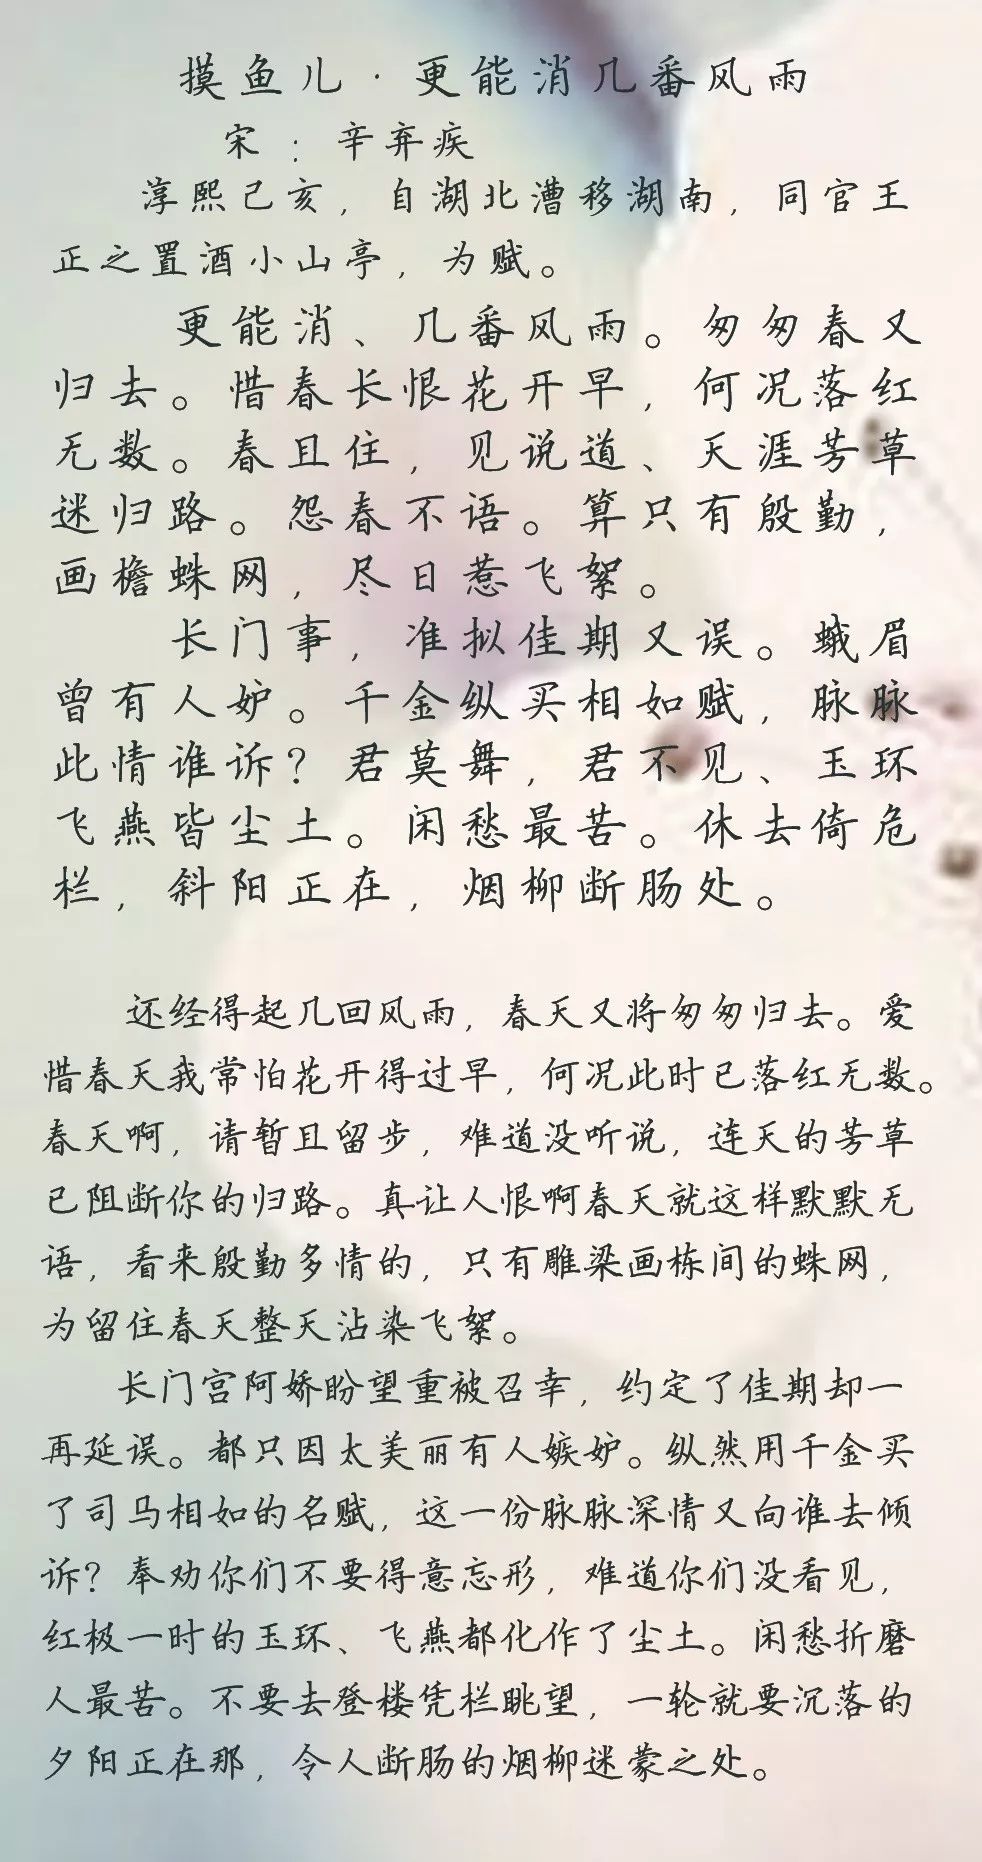 摸鱼儿·更能消几番风雨
宋：辛弃疾
淳熙己亥，自湖北漕移湖南，同官王
正之置酒小山亭，为赋。
更能消、几番风雨。匆匆春又
归去。惜春长恨花开早，何况落红
无数。春且住，见说道、天涯芳草
迷归路。怨春不语。算只有殷勤，
画檐蛛网，尽日惹飞絮。
长门事，准拟佳期又误。蛾眉
曾有人妒。千金纵买相如赋，脉脉
此情谁诉？君莫舞，君不见、玉环
飞燕皆尘土。闲愁最苦。休去倚危
栏，斜阳正在，烟柳断肠处。
还经得起几回风雨，春天又将匆匆归去。爱
惜春天我常怕花开得过早，何况此时已落红无数。
春天啊，请暂且留步，难道没听说，连天的芳草
已阻断你的归路。真让人恨啊春天就这样默默无
语，看来殷勤多情的，只有雕梁画栋间的蛛网，
为留住春天整天沾染飞絮。
长门宫阿娇盼望重被召幸，约定了佳期却一
再延误。都只因太美丽有人嫉妒。纵然用千金买
了司马相如的名赋，这一份脉脉深情又向谁去倾
诉？奉劝你们不要得意忘形，难道你们没看见，
红极一时的玉环、飞燕都化作了尘土。闲愁折磨
人最苦。不要去登楼凭栏眺望，一轮就要沉落的
夕阳正在那，令人断肠的烟柳迷蒙之处。